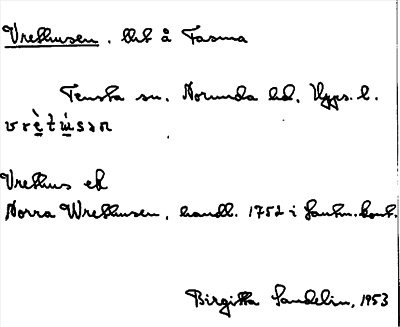 Vrethusen, bbt å Tasma
Tensta sn, Norunda hd, Upps. l.
vrètúsən
Vrethus ek
Norra Wrethusen, handl. 1752 i lantm.kont.
Birgitta Sandelin, 1953